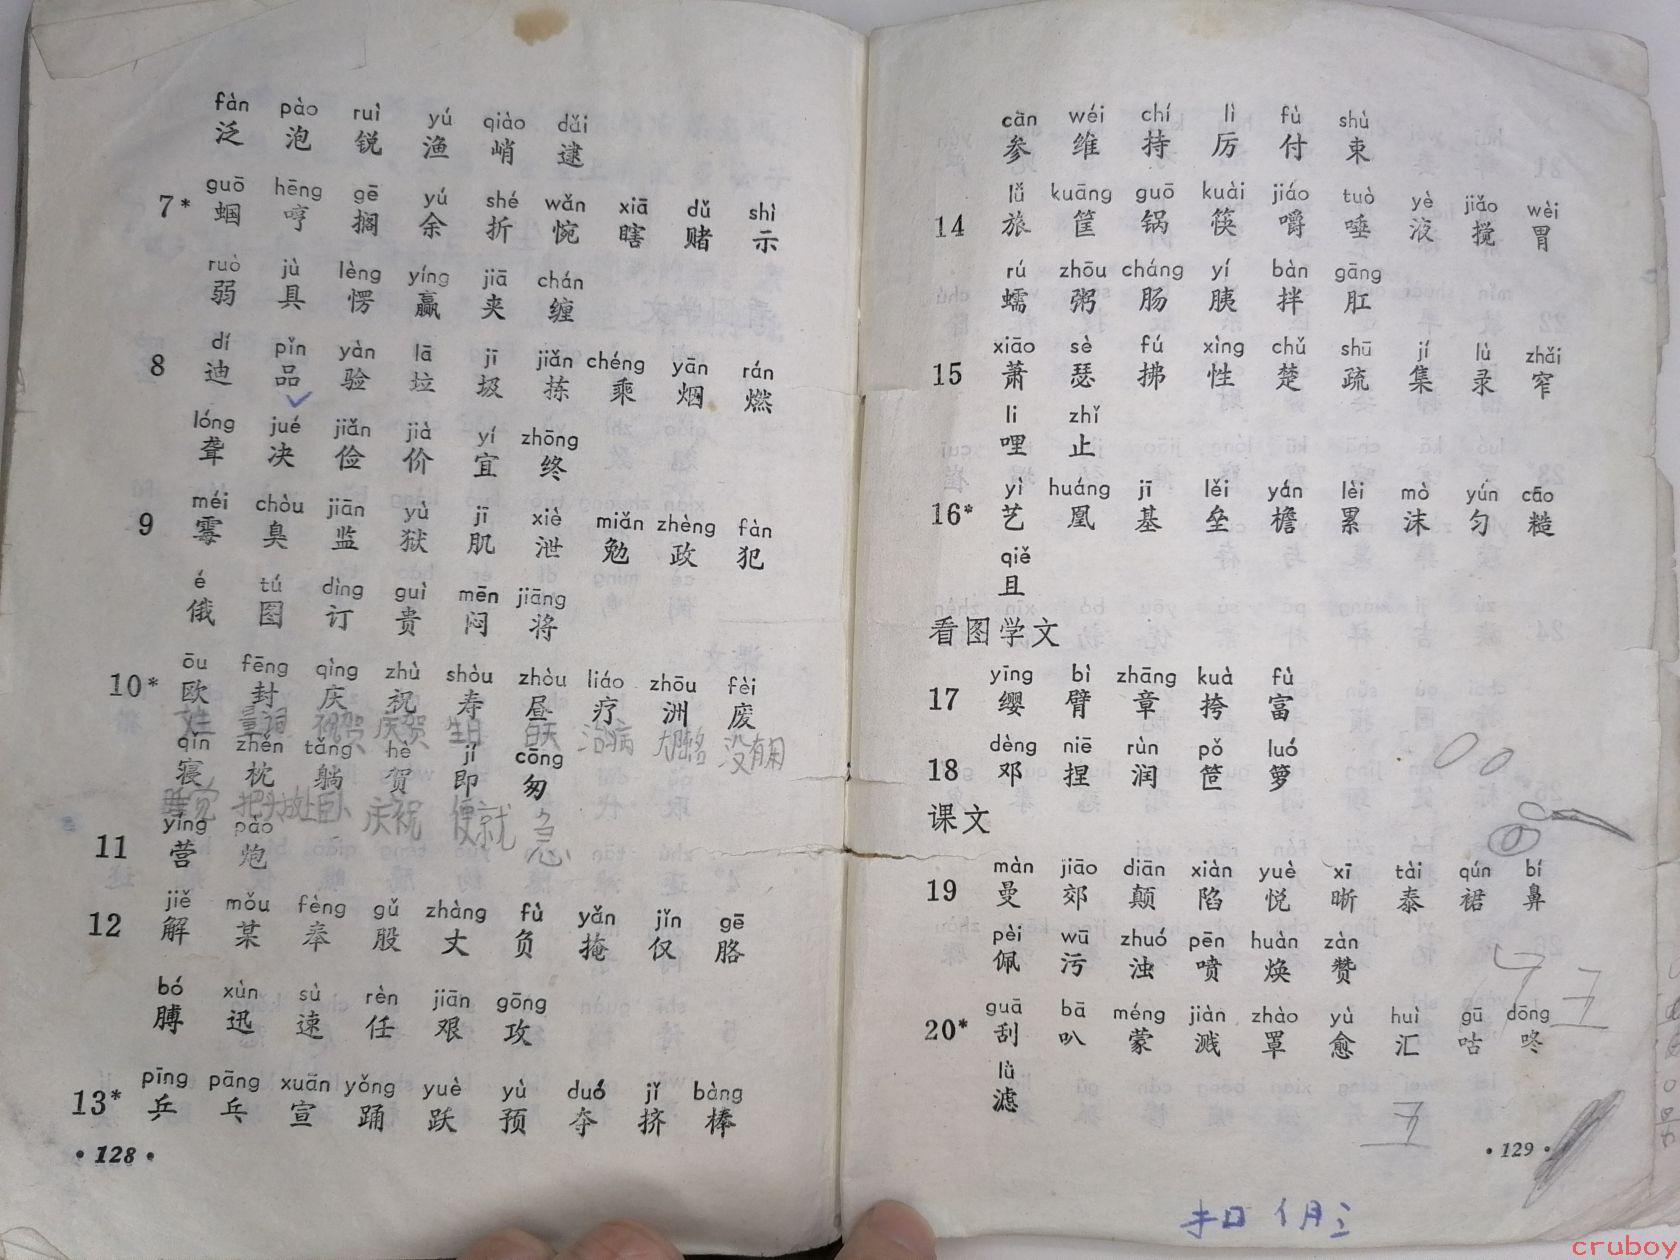 fàn pào ruì yú qiào dǎi
泛 泡 锐 渔 峭 逮
guō hēng gē yú shé wǎn xiā dǔ shì
7* 蝈 哼 搁 余 折 惋 瞎 赌 示
ruò jù lèng yíng jiā chán
弱 具 愣 赢 夹 缠
dí pǐn yàn lā jī jiǎn chéng yān rán
8 迪 品 验 垃 圾 拣 乘 烟 燃
lóng jué jiǎn jià yí zhōng
聋 决 俭 价 宜 终
méi chòu jiān yù jī xiè miǎn zhèng fàn
9 霉 臭 监 狱 肌 泄 勉 政 犯
é tú dìng guì mēn jiāng
俄 图 订 贵 闷 将
ōu fēng qìng zhù shòu zhòu liáo zhōu fèi
10* 欧 封 庆 祝 寿 昼 疗 洲 废
姓 量词 祝贺 庆贺 生日 白天 治病 没有用
qǐn zhěn tǎng hè jí cōng
寝 枕 躺 贺 即 匆
睡觉 把头放处 卧 庆祝 便就 急
yíng pào
11 营 炮
jiě mǒu fèng gǔ zhàng fù yǎn jǐn gē
12 解 某 奉 股 丈 负 掩 仅 胳
bó xùn sù rèn jiān gōng
膊 迅 速 任 艰 攻
pīng pāng xuān yǒng yuè yù duó jǐ bàng
13* 乒 乓 宣 踊 跃 预 夺 挤 棒
• 128 •
cān wéi chí lì fù shù
参 维 持 厉 付 束
lǚ kuāng guō kuài jiáo tuò yè jiǎo wèi
14 旅 筐 锅 筷 嚼 唾 液 搅 胃
rú zhōu cháng yí bàn gāng
蠕 粥 肠 胰 拌 肛
xiāo sè fú xìng chǔ shū jí lù zhǎi
15 萧 瑟 拂 性 楚 疏 集 录 窄
li zhǐ
哩 止
yì huáng jī lěi yán lèi mò yún cāo
16* 艺 凰 基 垒 檐 累 沫 匀 糙
qiě
且
看图学文
yīng bì zhāng kuà fù
17 缨 臂 章 挎 富
dèng niē rùn pǒ luó
18 邓 捏 润 笸 箩
课文
màn jiāo diān xiàn yuè xī tài qún bí
19 曼 郊 颠 陷 悦 晰 泰 裙 鼻
pèi wū zhuó pēn huàn zàn
佩 污 浊 喷 焕 赞
guā bā méng jiàn zhào yù huì gū dōng
20* 刮 叭 蒙 溅 罩 愈 汇 咕 咚
lǜ
滤
• 129 •
cruboy